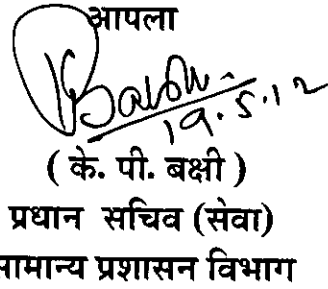 आपला
19.5.12
( के. पी. बक्षी )
प्रधान सचिव (सेवा)
सामान्य प्रशासन विभाग